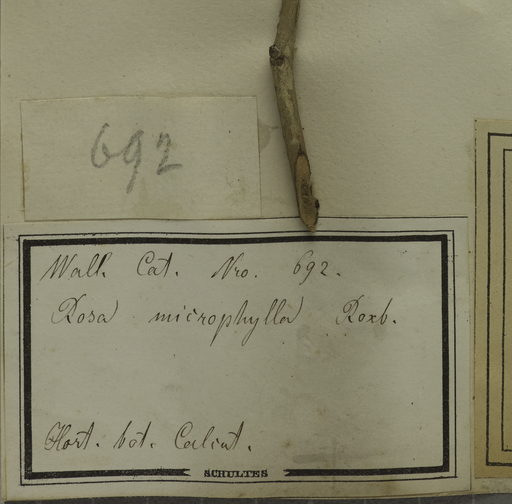 692
Wall. Cat. Nro. 692.
Rosa microphylla Roxb.
Hort. bot. Calcut.
SCHULTES